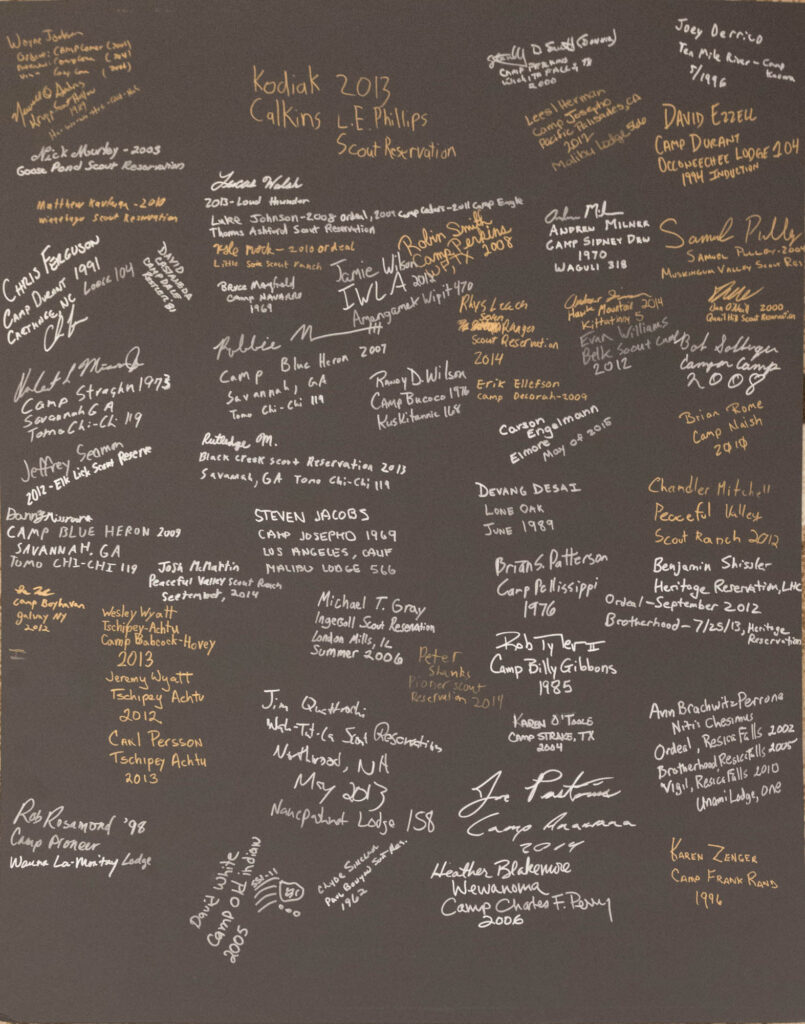 Wayne
Ordeal: Camp Comer (2001)
(2006)
Nick Murley - 2003
Goose Pond Scout Reservation
Matthew - 2010
Scout Reservation
Chris Ferguson
Camp Durant 1991
Lodge 104
Carthage, NC
David
Castaneda
Camp Dale
Camp Straghn 1973
Savannah GA
Tomo Chi-Chi 119
Jeffrey Seamon
2012 - Elk Lick Scout Reserve
Camp Blue Heron 2009
Savannah, GA
Tomo Chi-Chi 119
Josh McMartin
Peaceful Valley Scout Ranch
September, 2014
Camp Boyhaven
Galway NY
2012
Wesley Wyatt
Tschipey-Achtu
Camp Babcock-Hovey
2013
Jeremy Wyatt
Tschipey Achtu
2012
Carl Persson
Tschipey Achtu
2013
Rob Rosamond '98
Camp Pioneer
Wauna La-Montay Lodge
Kodiak 2013
Calkins L.E. Phillips
Scout Reservation
Lucas Walsh
2013 - Loud Thunder
Luke Johnson - 2008 Ordeal, 2009 Camp Cedars - 2011 Camp Eagle
Thomas Ashford Scout Reservation
Kyle Mock - 2010 Ordeal
Little Sioux Scout Ranch
Bruce Mayfield
Camp Navarro
1969
Jamie Wilson
IWLA 2012
Amangamek Wipit 470
Robin Smith
Camp Perkins
WF, TX 2008
Robbie M
Camp Blue Heron 2007
Savannah, GA
Tomo Chi-Chi 119
Randy D. Wilson
Camp Bucoco 1976
Kuskitannee 168
Rutledge M.
Black Creek Scout Reservation 2013
Savannah, GA Tomo Chi-Chi 119
Steven Jacobs
Camp Josepho 1969
Los Angeles, Calif
Malibu Lodge 566
Michael T. Gray
Ingersoll Scout Reservation
London Mills, IL
Summer 2006
Peter
Shanks
Pioneer Scout
Reservation 2014
Jim Quattrochi
Wah-Tut-Ca Scout Reservation
Northwood, NH
May 2013
Nanepashemet Lodge 158
David White
Camp Old Indian
2005
Clyde Sinclair
Paul Bunyan Sct. Res.
1962
D Scott
Camp Perkins
Wichita Falls, TX
2000
Joey Derrico
Ten Mile River - Camp
Kunatah
7/1996
Lees I Herman
Camp Josepho
Pacific Palisades, CA
2012
Malibu Lodge 566
David Ezzell
Camp Durant
Occoneechee Lodge 104
1994 Induction
Andrew Milner
Camp Sidney Dew
1970
Waguli 318
Samuel
Muskingum Valley Scout Res
Rhys Leach
Seven
Ranges
Scout Reservation
2014
Hawk Mountain 2014
Kittatinny 5
2000
Quail Hill Scout Reservation
Evan Williams
Belk Scout Camp
2012
Bob
Camp
2008
Erik Ellefson
Camp Decorah - 2009
Carson
Engelmann
Elmore
May of 2015
Brian Rome
Camp Naish
2010
Devang Desai
Lone Oak
June 1989
Chandler Mitchell
Peaceful Valley
Scout Ranch 2012
Brian S. Patterson
Camp Pellissippi
1976
Benjamin Shissler
Heritage Reservation, LHC
Ordeal - September 2012
Brotherhood - 7/25/13, Heritage
Reservation
Rob Tyler II
Camp Billy Gibbons
1985
Karen O'Toole
Camp Strake, TX
2004
Ann Brachwitz Perrone
Nitis Chesimus
Ordeal, Resica Falls 2002
Brotherhood Resica Falls 2005
Vigil, Resica Falls 2010
Unami Lodge, One
Camp Anawana
2014
Heather Blakemore
Wewanoma
Camp Charles F. Perry
2006
Karen Zenger
Camp Frank Rand
1996